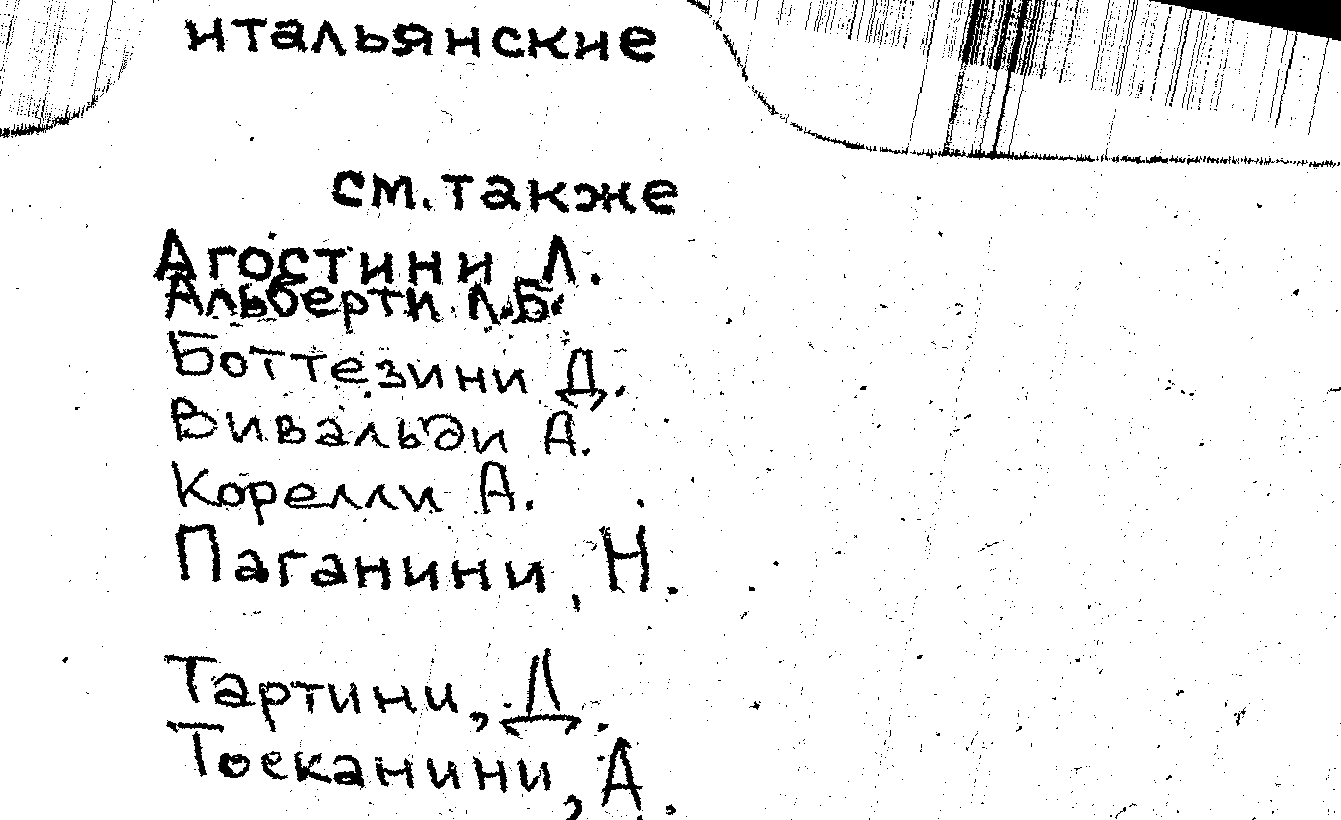 итальянские
см. также
Агостини Л.
Альберти Л.Б.
Боттезини Д.
Вивальди А.
Корелли А.
Паганини, Н.
Тартини, Д.
Тосканини, А.